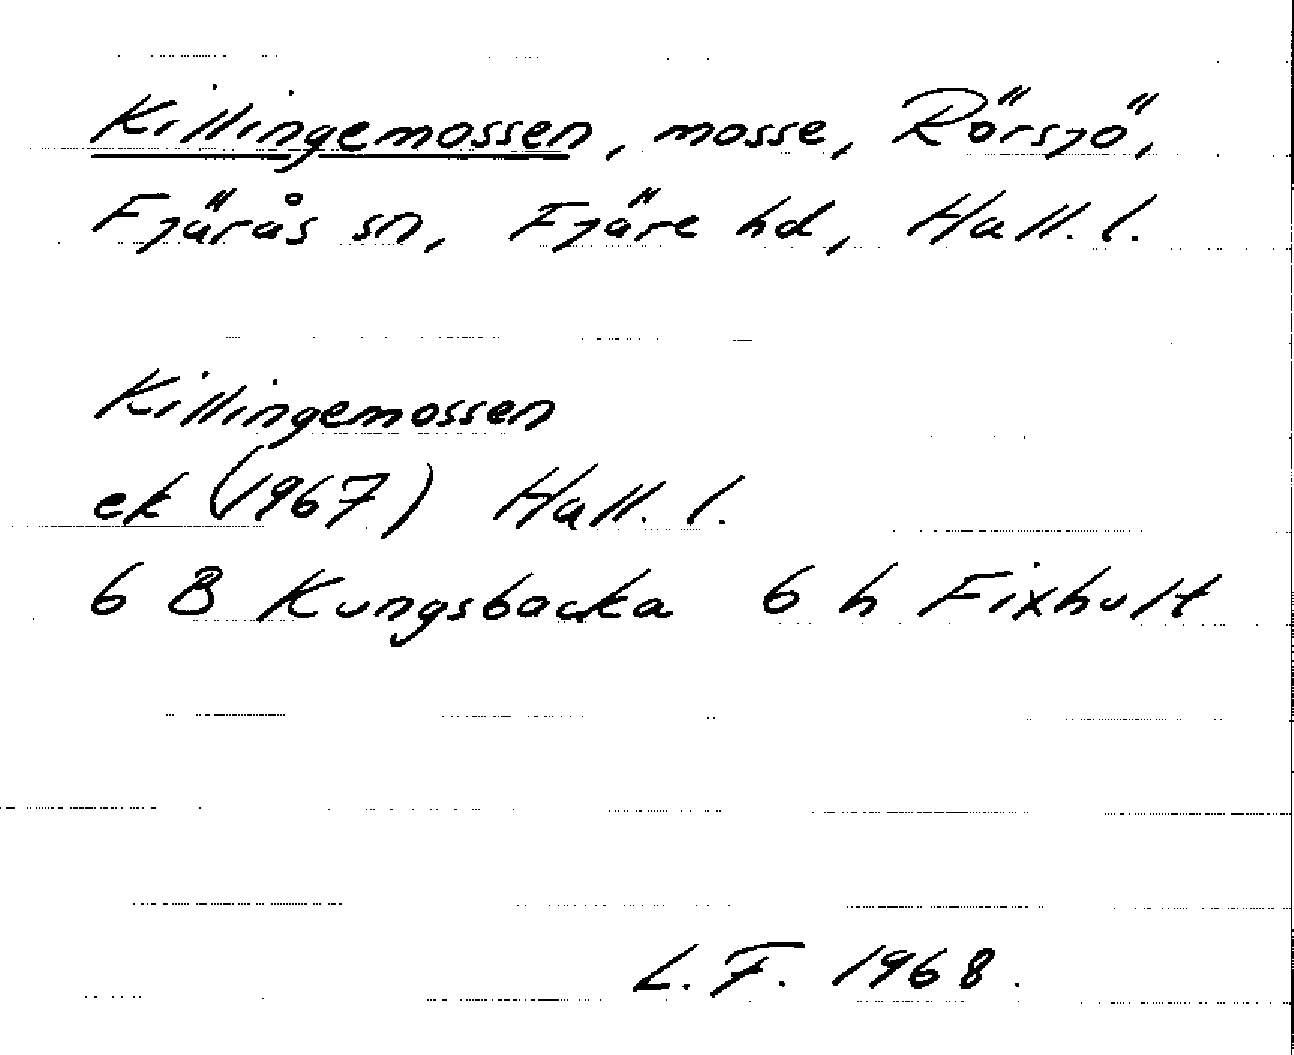 Killingemossen, mosse, Rörsjö,
Fjärås sn, Fjäre hd, Hall. l.
Killingemossen
ek (1967) Hall. l.
6 B Kungsbacka 6 h Fixhult
L. F. 1968.